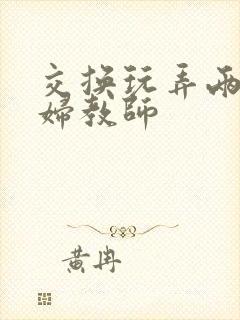 交换玩弄两
婦教師
黄冉